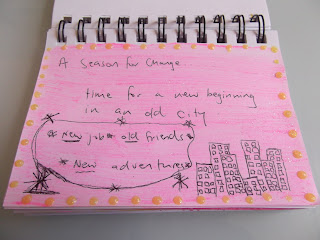 A Season for Change
time for a new beginning
in an old city
New job old friends
New adventures